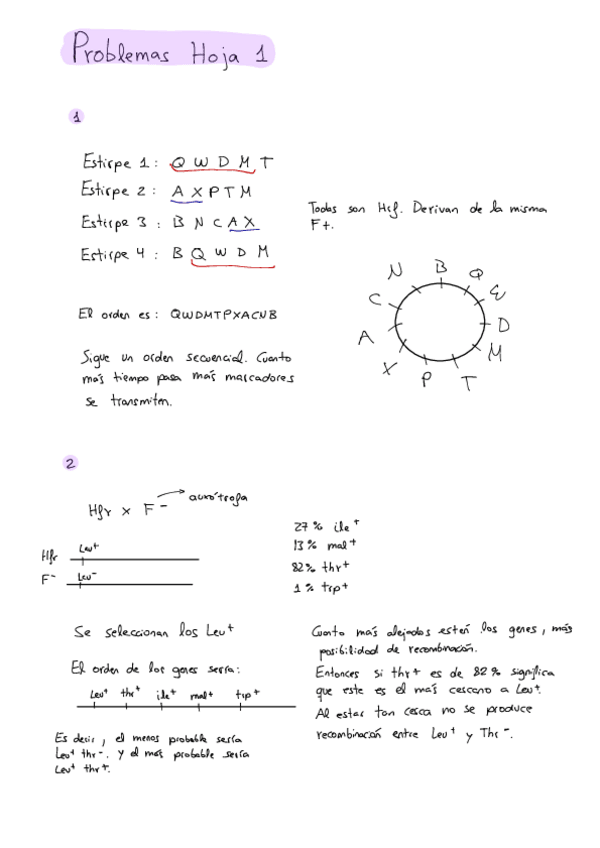 Problemas Hoja 1
1
Estirpe 1: Q W D M T
Estirpe 2: A X P T M
Estirpe 3: B N C A X
Estirpe 4: B Q W D M
Todas son Hfr. Derivan de la misma
F+.
El orden es: QWDMTPXACNB
Sigue un orden secuencial. Cuanto
más tiempo pasa más marcadores
se transmiten.
B
Q
W
D
M
T
P
X
A
C
N
2
Hfr x F- auxótrofa
Hfr Leu+
F- Leu-
27% ile+
13% mal+
82% thr+
1% trp+
Se seleccionan los Leu+
El orden de los genes sería:
Leu+ thr+ ile+ mal+ trp+
Es decir, el menos probable sería
Leu+ thr-. y el más probable sería
Leu+ thr+.
Cuanto más alejados estén los genes, más
posibilidad de recombinación.
Entonces si thr+ es de 82% significa
que este es el más cercano a Leu+.
Al estar tan cerca no se produce
recombinación entre Leu+ y Thr-.